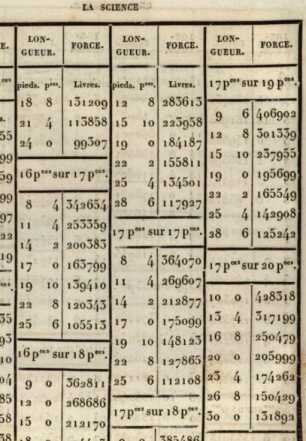 LA SCIENCE
LON-
GUEUR.
FORCE.
pieds. p^ces.
Livres.
18 8 131209
21 4 113858
24 0 99307
16 p^ces sur 17 p^ces.
8 4 342654
11 4 253359
14 2 200383
17 0 163799
19 10 139410
22 8 120343
25 6 105513
16 p^ces sur 18 p^ces.
9 0 362811
12 0 268686
15 0 212170
LON-
GUEUR.
FORCE.
pieds. p^ces.
Livres.
12 8 283613
15 10 223958
19 0 184187
22 2 155811
25 4 134501
28 6 117927
17 p^ces sur 17 p^ces.
8 4 364070
11 4 269607
14 2 212877
17 0 175099
19 10 148123
22 8 127865
25 6 112108
17 p^ces sur 18 p^ces.
9 0 385486
LON-
GUEUR.
FORCE.
17 p^ces sur 19 p^ces.
9 6 406902
12 8 301339
15 10 237955
19 0 195699
22 2 165549
25 4 142908
28 6 125242
17 p^ces sur 20 p^ces.
10 0 428318
13 4 317199
16 8 250479
20 0 205999
23 4 174262
26 8 150429
30 0 131892